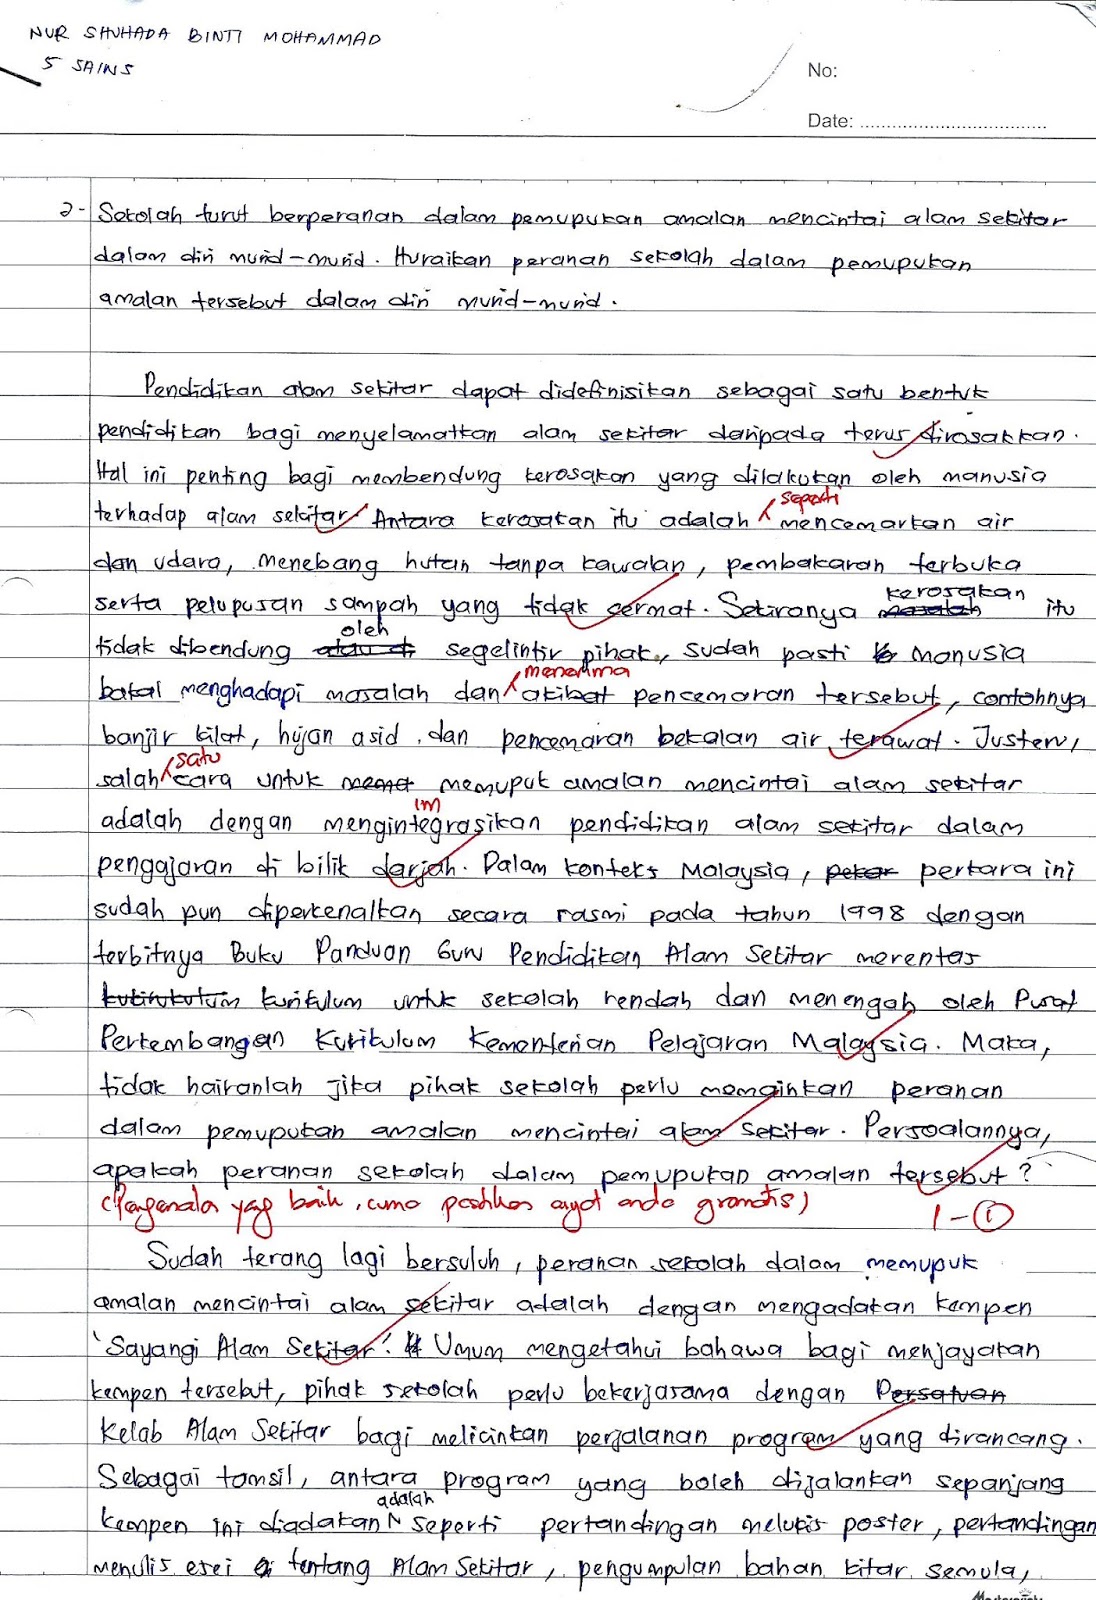 NUR SHUHADA BINTI MOHAMMAD
5 SAINS
No:
Date: ................................
2- Sekolah turut berperanan dalam pemupukan amalan mencintai alam sekitar
dalam diri murid-murid. Huraikan peranan sekolah dalam pemupukan
amalan tersebut dalam diri murid-murid.
Pendidikan alam sekitar dapat didefinisikan sebagai satu bentuk
pendidikan bagi menyelamatkan alam sekitar daripada terus dirosakkan.
Hal ini penting bagi membendung kerosakan yang dilakukan oleh manusia
seperti
terhadap alam sekitar. Antara kerosakan itu adalah mencemarkan air
dan udara, menebang hutan tanpa kawalan, pembakaran terbuka
kerosakan
serta pelupusan sampah yang tidak cermat. Sekiranya masalah itu
oleh
tidak dibendung segelintir pihak, sudah pasti manusia
menerima
bakal menghadapi masalah dan akibat pencemaran tersebut, contohnya
banjir kilat, hujan asid, dan pencemaran bekalan air terawat. Justeru,
satu
salah cara untuk memupuk amalan mencintai alam sekitar
im
adalah dengan mengintegrasikan pendidikan alam sekitar dalam
pengajaran di bilik darjah. Dalam konteks Malaysia, perkara ini
sudah pun diperkenalkan secara rasmi pada tahun 1998 dengan
terbitnya Buku Panduan Guru Pendidikan Alam Sekitar merentas
kurikulum untuk sekolah rendah dan menengah oleh Pusat
Perkembangan Kurikulum Kementerian Pelajaran Malaysia. Maka,
tidak hairanlah jika pihak sekolah perlu memainkan peranan
dalam pemupukan amalan mencintai alam sekitar. Persoalannya,
apakah peranan sekolah dalam pemupukan amalan tersebut?
(Pengenalan yang baik, cuma pastikan ayat anda gramatis) 1-①
Sudah terang lagi bersuluh, peranan sekolah dalam memupuk
amalan mencintai alam sekitar adalah dengan mengadakan kempen
'Sayangi Alam Sekitar'. Umum mengetahui bahawa bagi menjayakan
kempen tersebut, pihak sekolah perlu bekerjasama dengan Persatuan
Kelab Alam Sekitar bagi melicinkan perjalanan program yang dirancang.
Sebagai tamsil, antara program yang boleh dijalankan sepanjang
adalah
kempen ini diadakan seperti pertandingan melukis poster, pertandingan
menulis esei tentang Alam Sekitar, pengumpulan bahan kitar semula,